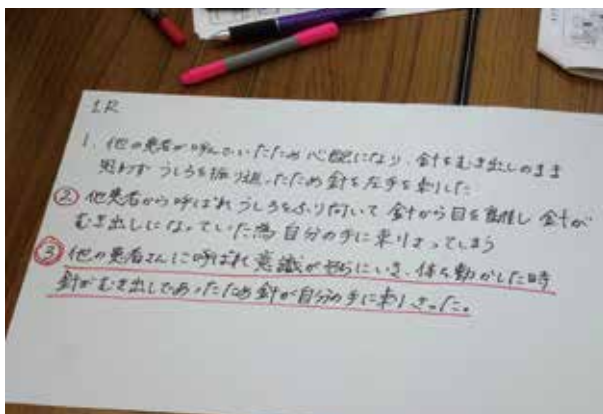 1R
1. 他の患者が呼んでいたため心配になり、針をむき出しのまま
思わずうしろを振り返ったため針を左手を刺した
② 他患者から呼ばれうしろをふり向いて針から目を離し針が
むき出しになっていた為自分の手に刺りささってしまう
③ 他の患者さんに呼ばれ意識がそちらにいき、体を動かした時
針がむき出しであったため針が自分の手に刺しささった。